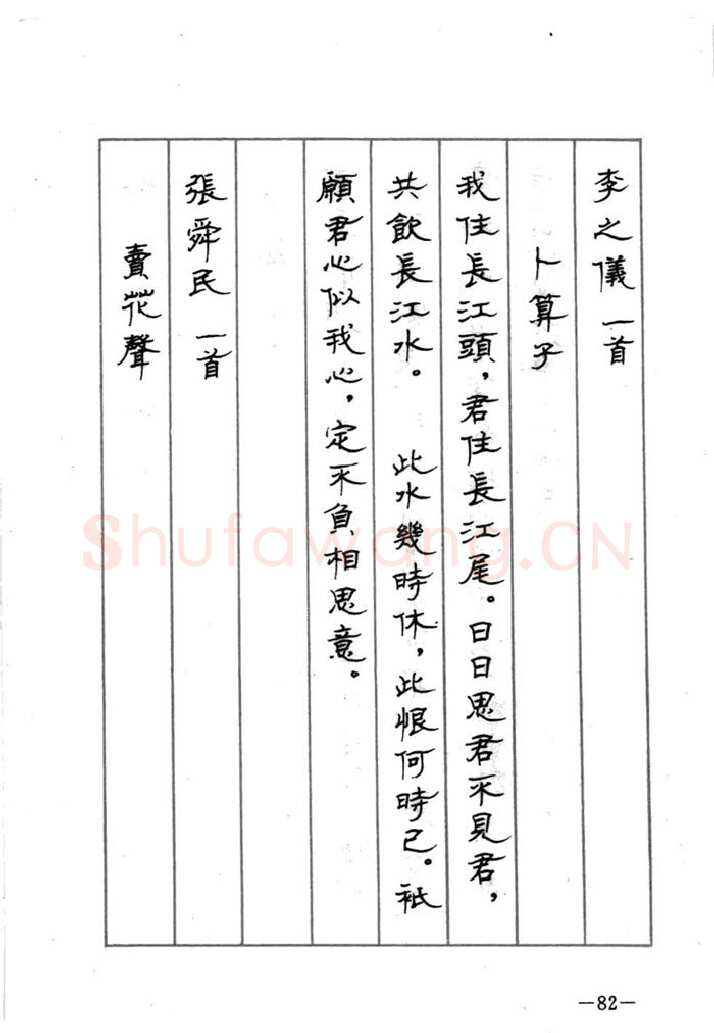 李之儀 一首
卜算子
我住長江頭，君住長江尾。日日思君不見君，
共飲長江水。 此水幾時休，此恨何時已。衹
願君心似我心，定不負相思意。
張舜民 一首
賣花聲
Shufawang.CN
—82—